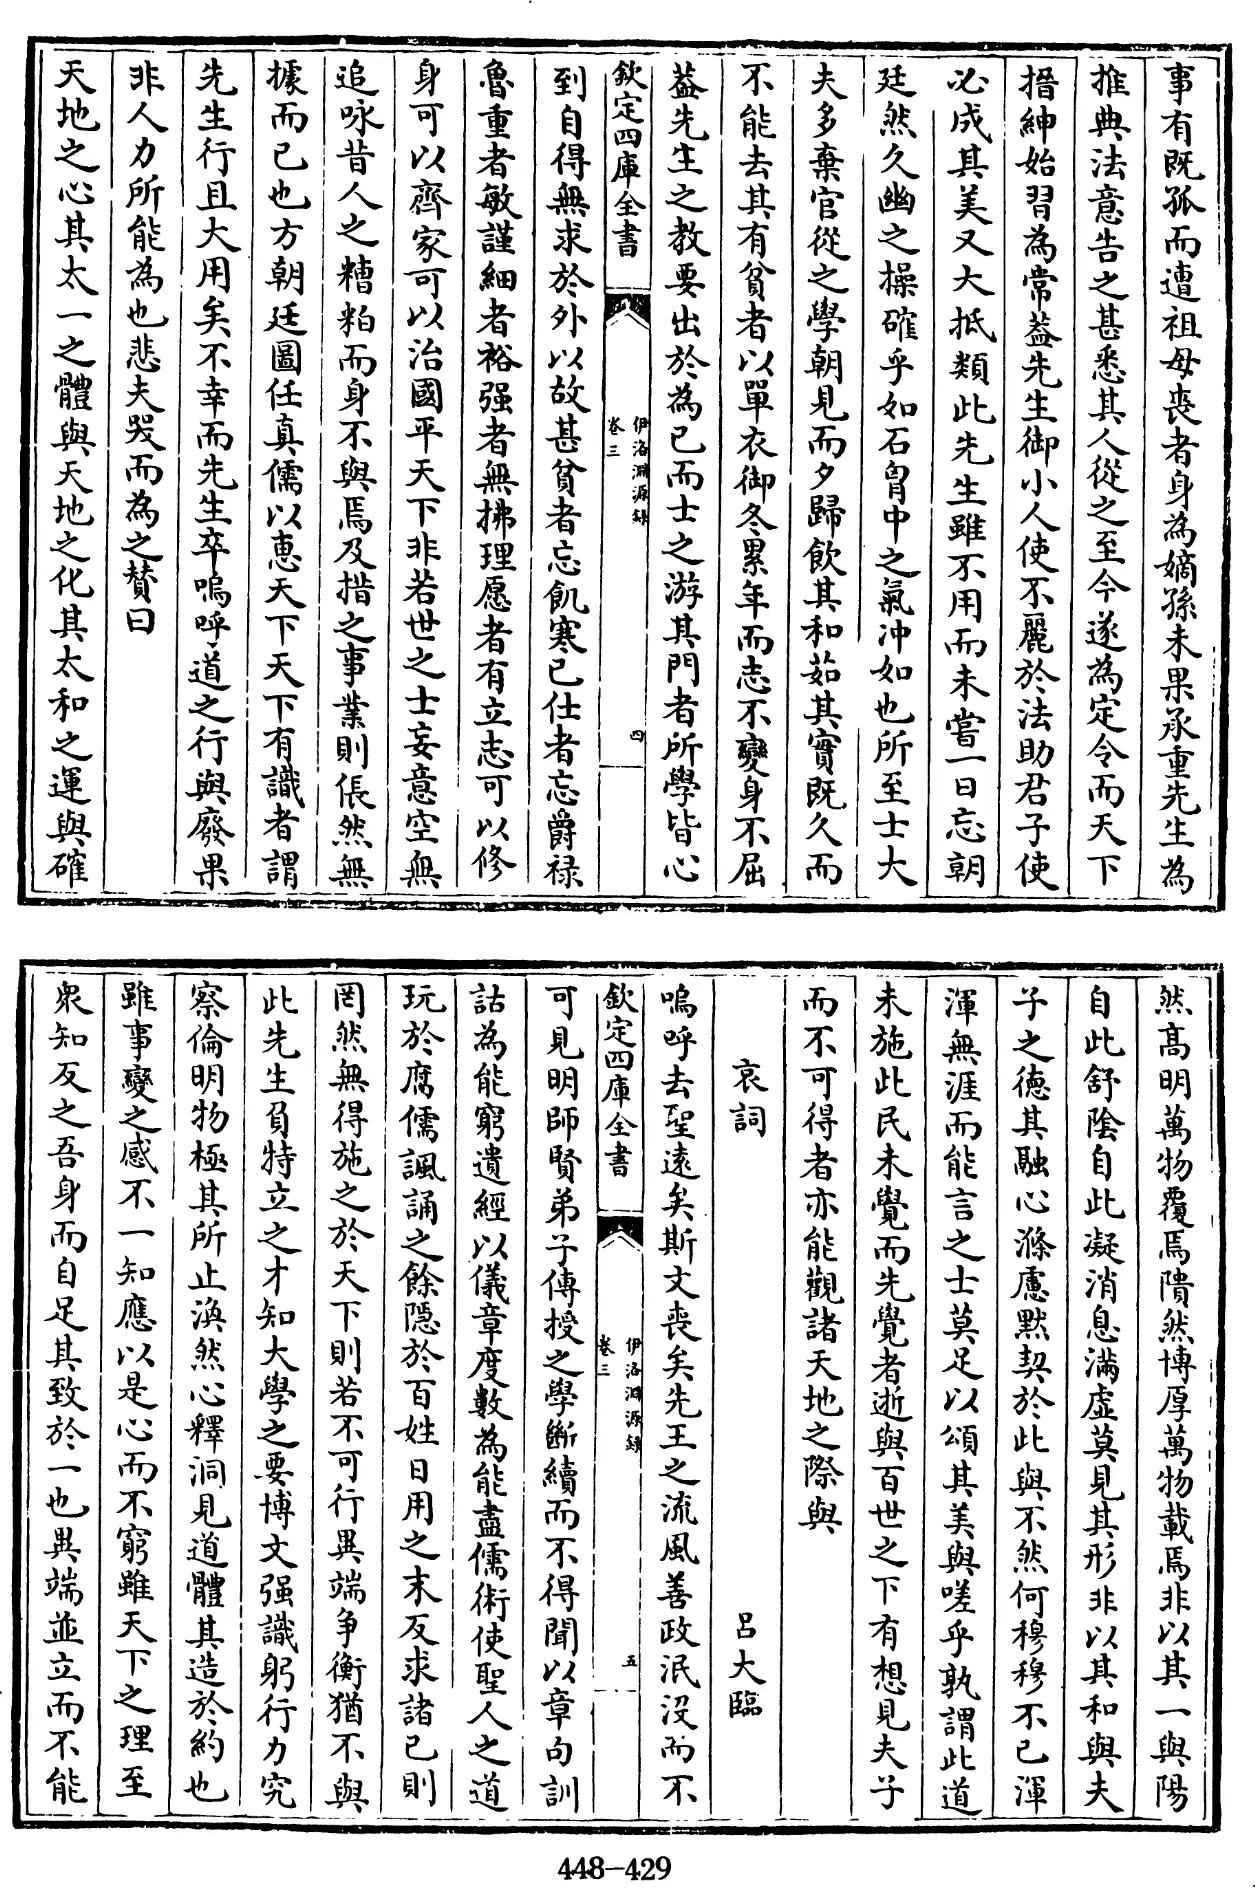 事有既孤而遭祖母喪者身為嫡孫未果承重先生為
推典法意告之甚悉其人從之至今遂為定令而天下
搢紳始習為常葢先生御小人使不麗於法助君子使
必成其美又大抵類此先生雖不用而未嘗一日忘朝
廷然久幽之操確乎如石胷中之氣冲如也所至士大
夫多棄官從之學朝見而夕歸飲其和茹其實既久而
不能去其有貧者以單衣御冬累年而志不變身不屈
葢先生之教要出於為己而士之游其門者所學皆心
欽定四庫全書
伊洛淵源録
卷三
四
到自得無求於外以故甚貧者忘飢寒已仕者忘爵禄
魯重者敏謹細者裕强者無拂理愿者有立志可以修
身可以齊家可以治國平天下非若世之士妄意空無
追咏昔人之糟粕而身不與焉及措之事業則倀然無
據而已也方朝廷圖任真儒以惠天下天下有識者謂
先生行且大用矣不幸而先生卒嗚呼道之行與廢果
非人力所能為也悲夫哭而為之賛曰
天地之心其太一之體與天地之化其太和之運與確
然髙明萬物覆焉隤然博厚萬物載焉非以其一與陽
自此舒陰自此凝消息滿虚莫見其形非以其和與夫
子之德其融心滌慮黙契於此與不然何穆穆不已渾
渾無涯而能言之士莫足以頌其美與嗟乎孰謂此道
未施此民未覺而先覺者逝與百世之下有想見夫子
而不可得者亦能觀諸天地之際與
哀詞 吕大臨
嗚呼去聖逺矣斯文喪矣先王之流風善政泯没而不
欽定四庫全書
伊洛淵源録
卷三
五
可見明師賢弟子傳授之學斷續而不得聞以章句訓
詁為能窮遺經以儀章度數為能盡儒術使聖人之道
玩於腐儒諷誦之餘隠於百姓日用之末反求諸己則
罔然無得施之於天下則若不可行異端争衡猶不與
此先生負特立之才知大學之要博文强識躬行力究
察倫明物極其所止渙然心釋洞見道體其造於約也
雖事變之感不一知應以是心而不窮雖天下之理至
衆知反之吾身而自足其致於一也異端並立而不能
448-429